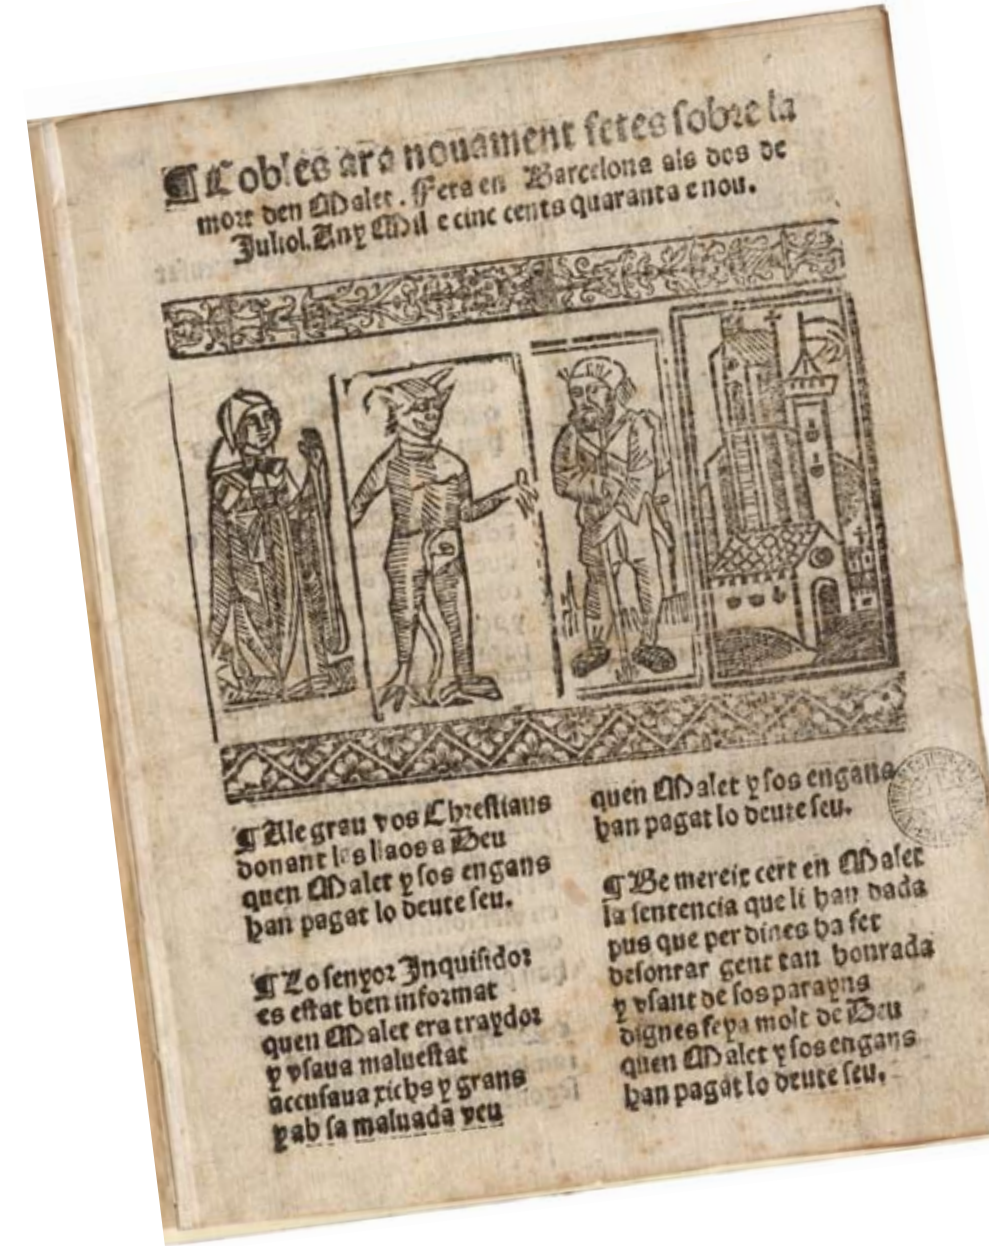 ¶ Cobles ara nouament fetes sobre la
mort den Malet. Feta en Barcelona als dos de
Juliol. Any Mil e cinc cents quaranta e nou.
¶ Alegrau vos Chrestians
donant les llaos a Deu
quen Malet y sos engans
han pagat lo deute seu.
¶ Lo senyor Inquisidor
es estat ben informat
quen Malet era traydor
y vsaua maluestat
accusaua richs y grans
y ab sa maluada veu
quen Malet y sos engans
han pagat lo deute seu.
¶ Be mereix cert en Malet
la sentencia que li han dada
pus que per dines ha fet
desonrar gent tan honrada
y vsant de sos parayns
dignes feya molt de Deu
quen Malet y sos engans
han pagat lo deute seu.